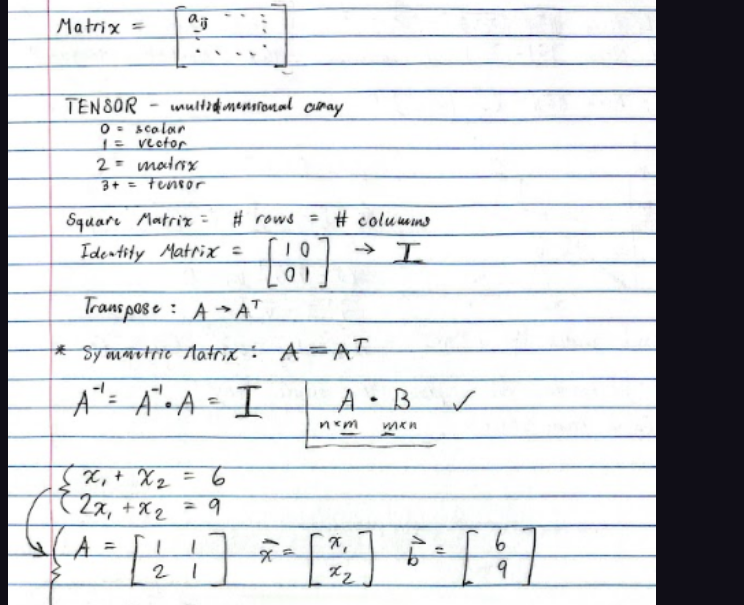 Matrix = [ a_ij ⋯ ⋮ ]
TENSOR - multidimensional array
0 = scalar
1 = vector
2 = matrix
3+ = tensor
Square Matrix = # rows = # columns
Identity Matrix = [ 1 0 ; 0 1 ] → I
Transpose : A → Aᵀ
* Symmetric Matrix : A = Aᵀ
A⁻¹ = A⁻¹ • A = I   A • B ✓
n×m m×n
x₁ + x₂ = 6
2x₁ + x₂ = 9
A = [ 1 1 ; 2 1 ]   x⃗ = [ x₁ ; x₂ ]   b⃗ = [ 6 ; 9 ]